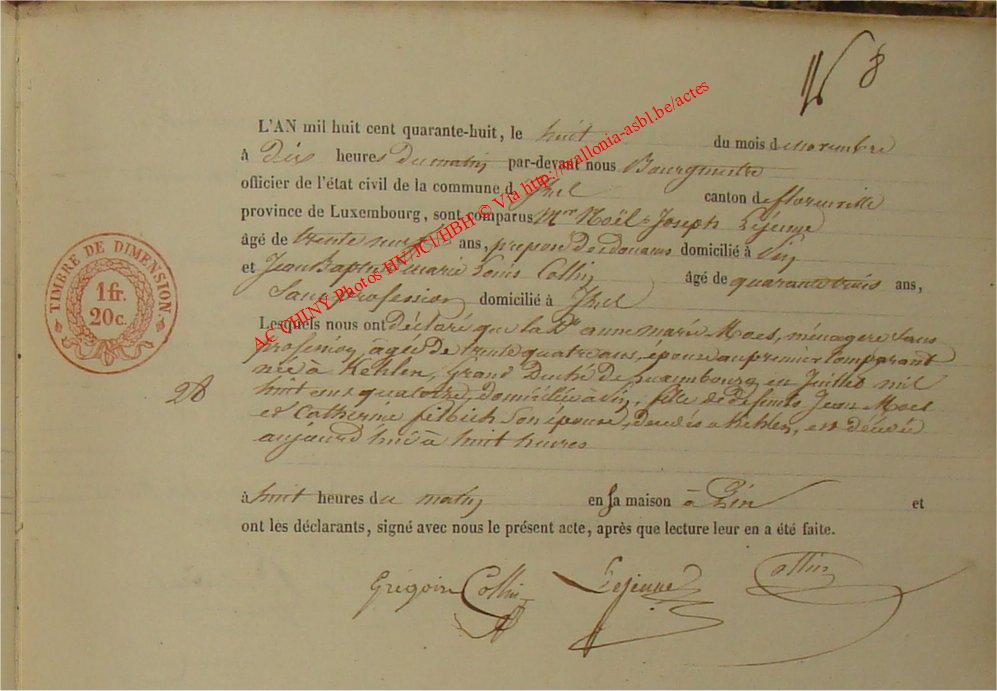 8
L'AN mil huit cent quarante-huit, le huit du mois de novembre
à dix heures du matin par-devant nous Bourgmestre
officier de l'état civil de la commune d'Izel canton de florenville
province de Luxembourg, sont comparus Mr Noël-Joseph Lejeune
âgé de trente neuf ans, préposé des douanes domicilié à Pin
et Jean Baptiste Marie Louis Collin âgé de quarante trois ans,
sans profession domicilié à Izel
Lesquels nous ont déclaré que la De anne marie Moes, ménagère sans
profession, agée de trente quatre ans, épouse au premier Comparant
née à Kehlen, grand Duché de Luxembourg, en Juillet mil
huit cent quatorze, domiciliée à Pin, fille de défunts Jean Moes
et Catherine son épouse, décédés à Kehlen, est décédée
aujourd'hui à huit heures
28
à huit heures du matin en sa maison à Pin et
ont les déclarants, signé avec nous le présent acte, après que lecture leur en a été faite.
Grégoire Collin Lejeune Collin
TIMBRE DE DIMENSION
1 fr.
20 c.
AC CHINY Photos HN/JCI/HBH © Via http://wallonia-asbl.be/actes